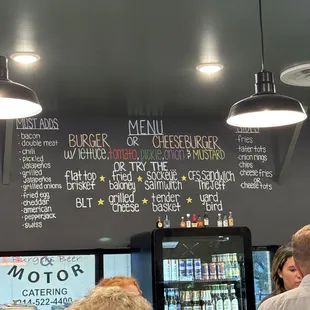 MUST ADDS
- bacon
- double meat
- chili
- pickled
jalapeños
- grilled
jalapeños
- grilled onions
- fried egg
- cheddar
- american
- pepperjack
- swiss
MENU
BURGER OR CHEESEBURGER
w/lettuce, tomato, pickle, onion & MUSTARD
OR TRY THE
flat top brisket
fried baloney
sockeye salmurch
CFS sandwich The Jeff
BLT
grilled cheese
tender basket
yard bird
fries
tater tots
onion rings
chips
cheese fries
cheese tots
Burger Beer
MOTOR
CATERING
214-522-4